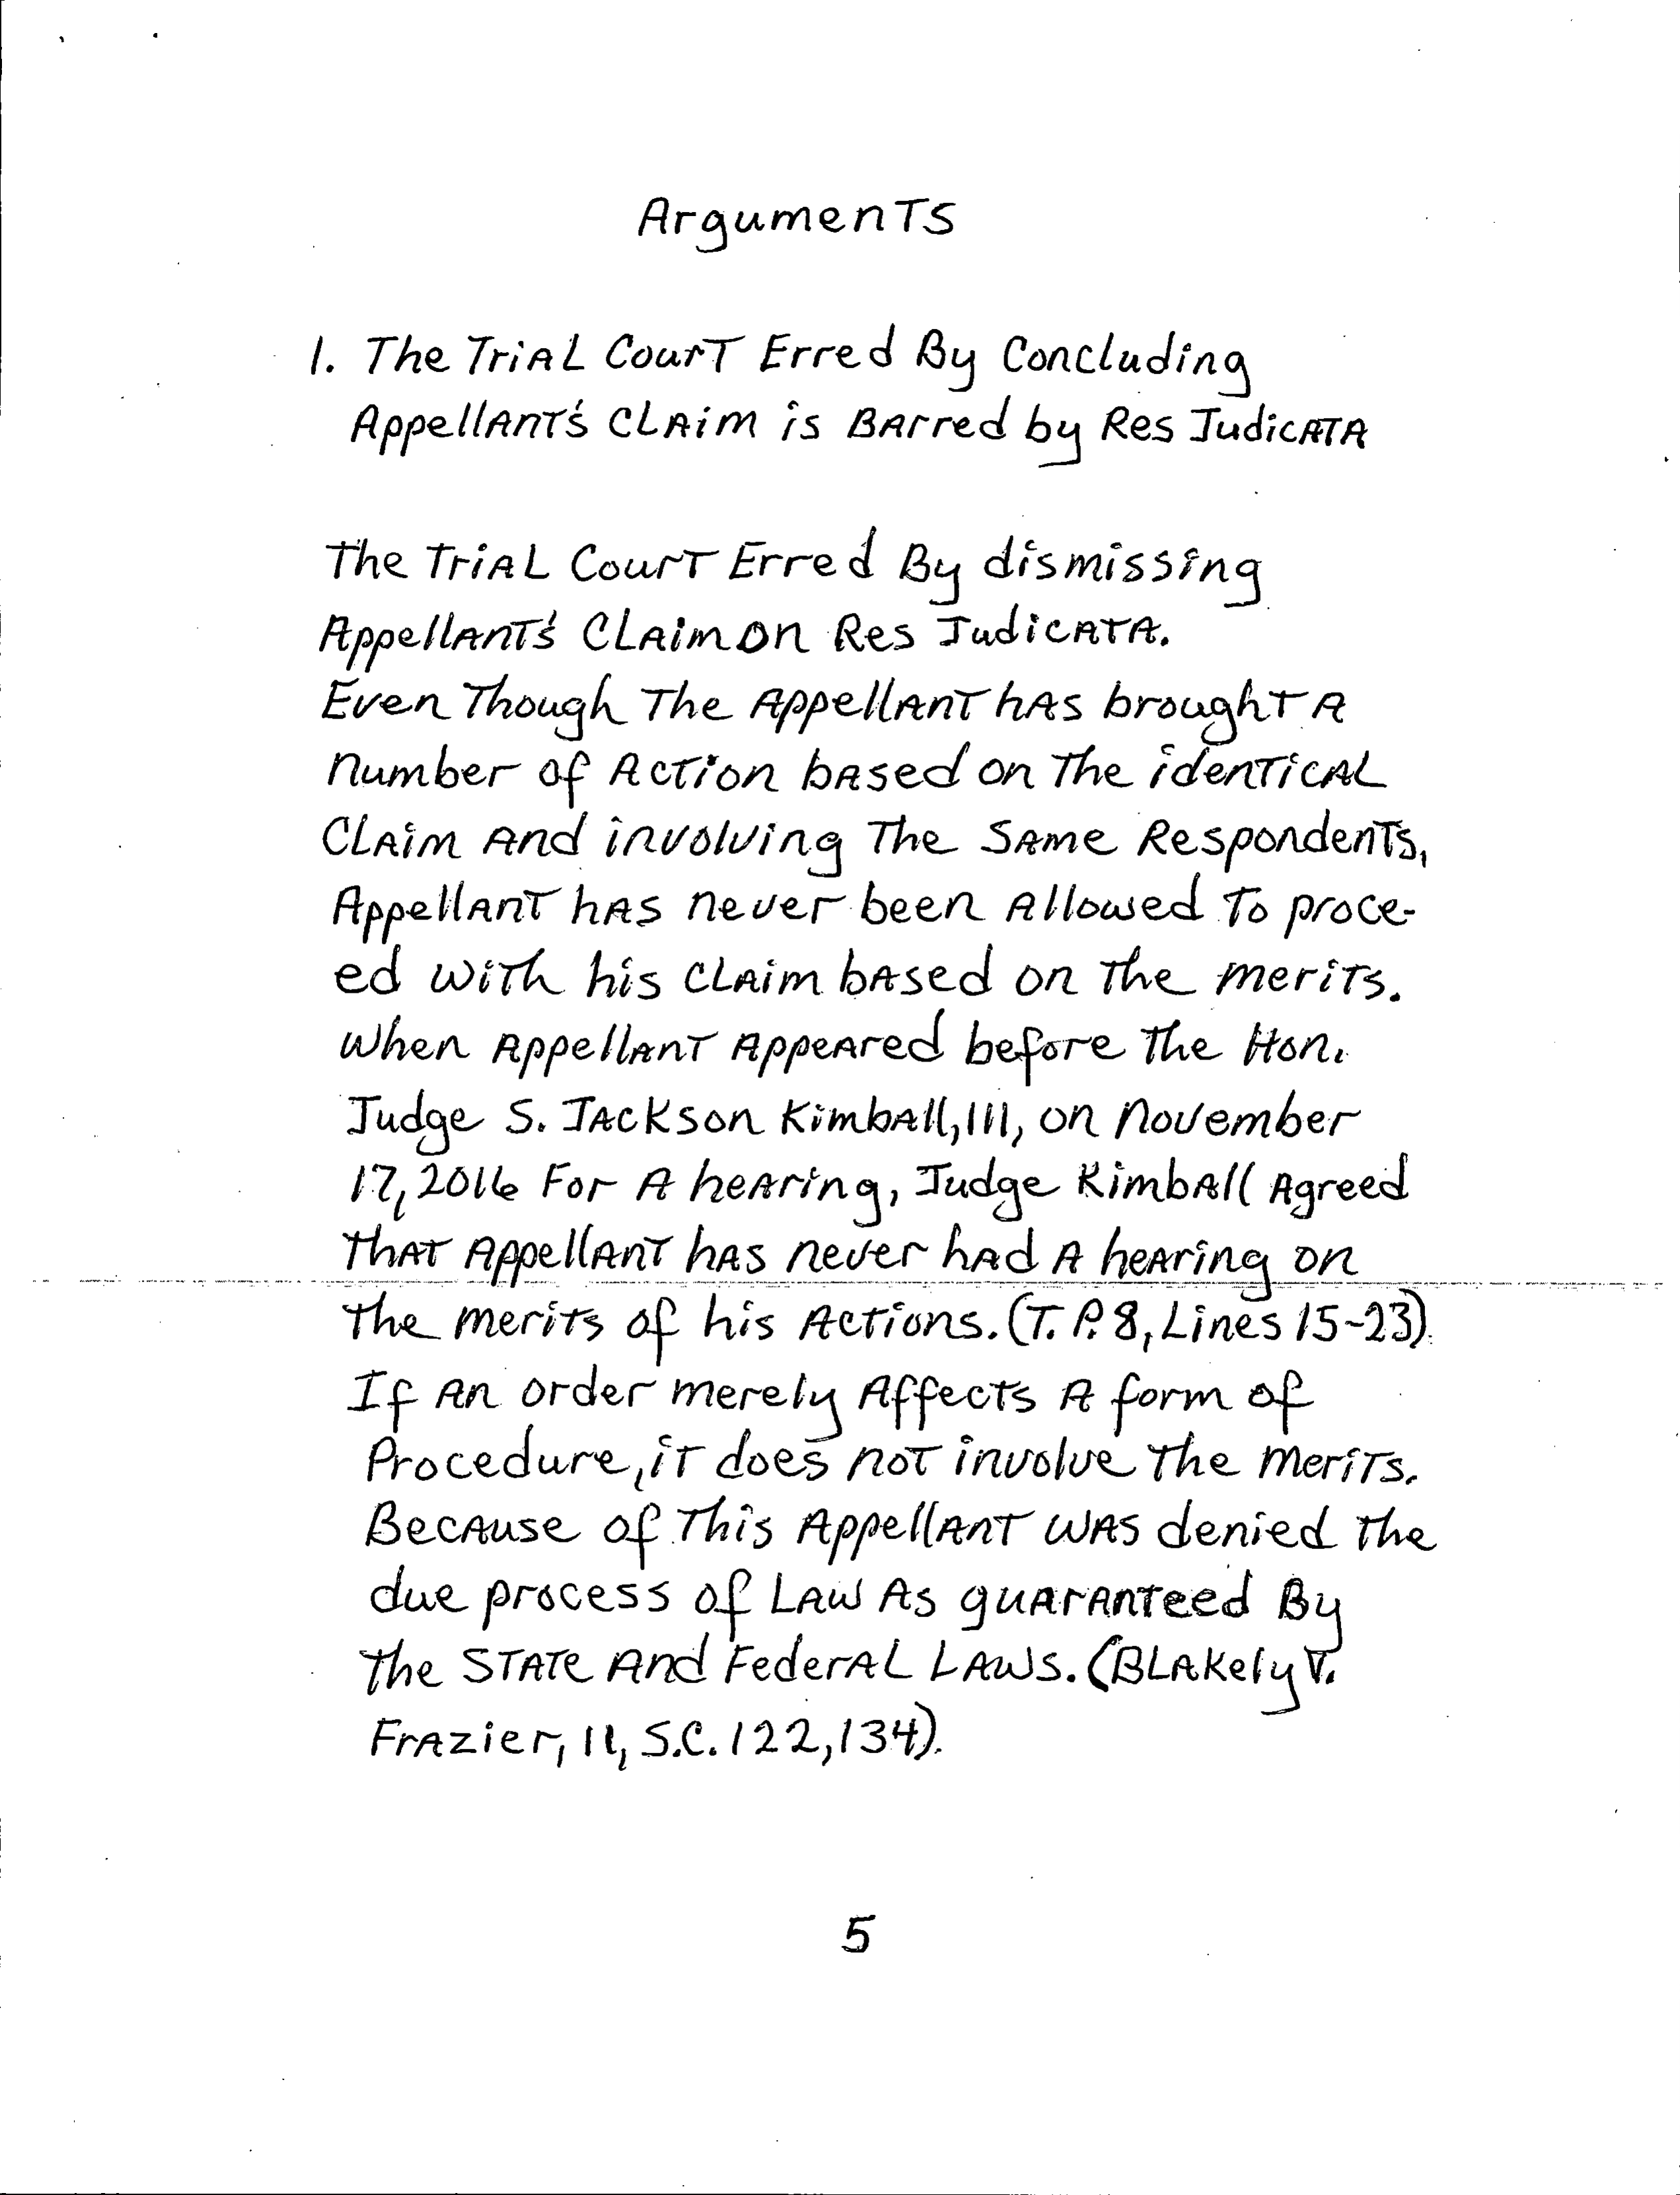 Arguments
1. The Trial Court Erred By Concluding
Appellant's Claim is Barred by Res Judicata
The Trial Court Erred By dismissing
Appellant's Claim on Res Judicata.
Even Though The Appellant has brought A
number of Action based on The identical
Claim And involving The Same Respondents,
Appellant has never been Allowed To proce-
ed with his Claim based on the merits.
When Appellant Appeared before The Hon.
Judge S. Jackson Kimball, III, on November
17, 2016 For A hearing, Judge Kimball Agreed
That Appellant has never had A hearing on
the merits of his Actions. (T. P. 8, Lines 15-23).
If An order merely Affects A form of
Procedure, it does not involve the merits.
Because of This Appellant was denied the
due process of Law As guaranteed By
the State And Federal Laws. (Blakely V.
Frazier, 11, S.C. 122, 134).
5